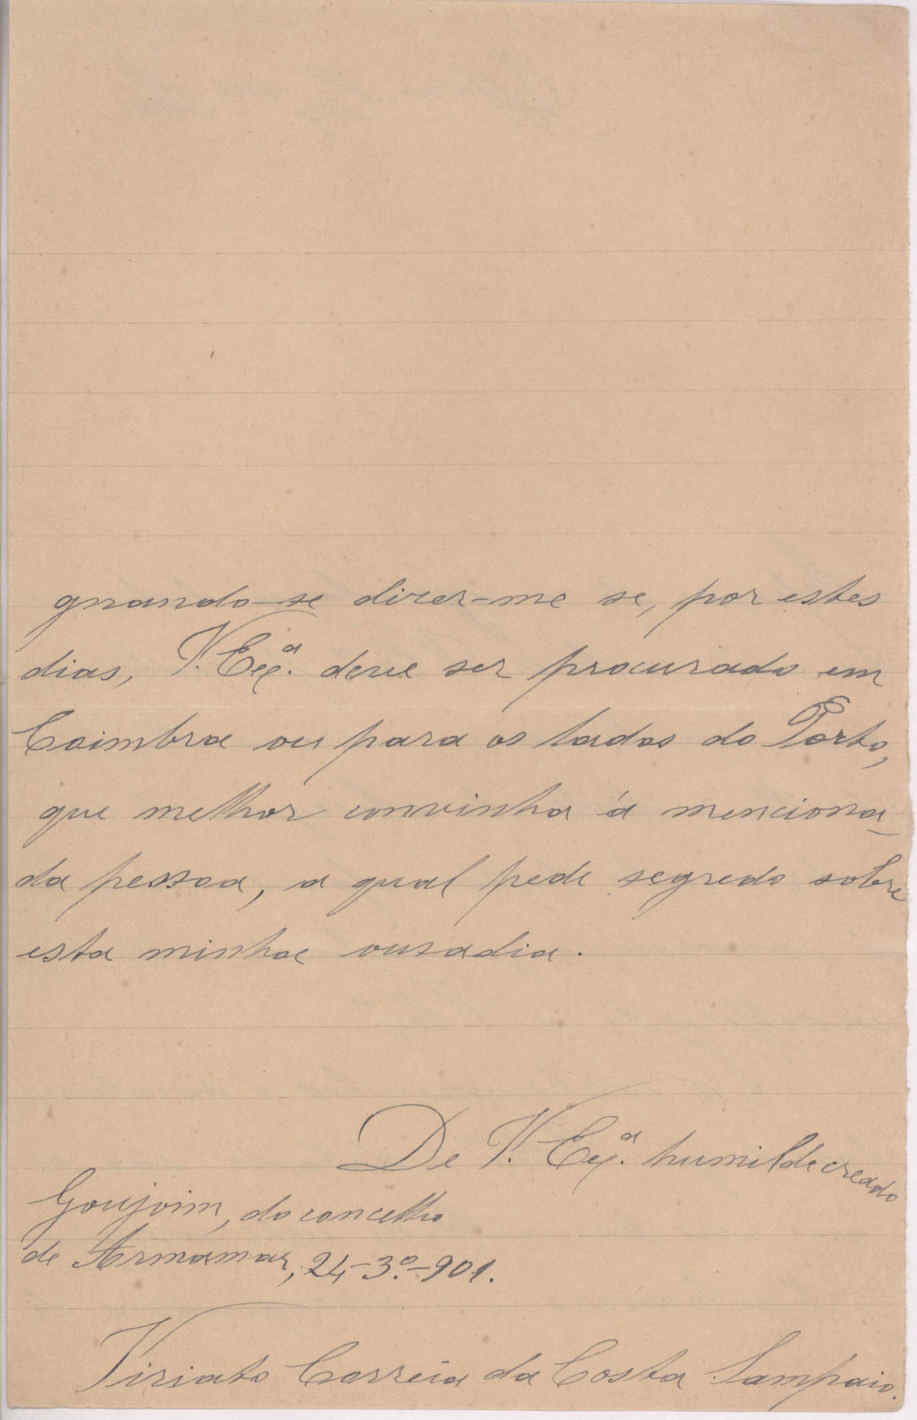 gnando-se dizer-me se, por estes
dias, V. Ex.ª deve ser procurado em
Coimbra ou para os lados do Porto,
que melhor convinha á menciona-
da pessoa, a qual pede segredo sobre
esta minha ousadia.
De V. Ex.ª humilde creado
Goujoim, do concelho
de Armamar, 24-3º-901.
Viriato Correia da Costa Sampaio.